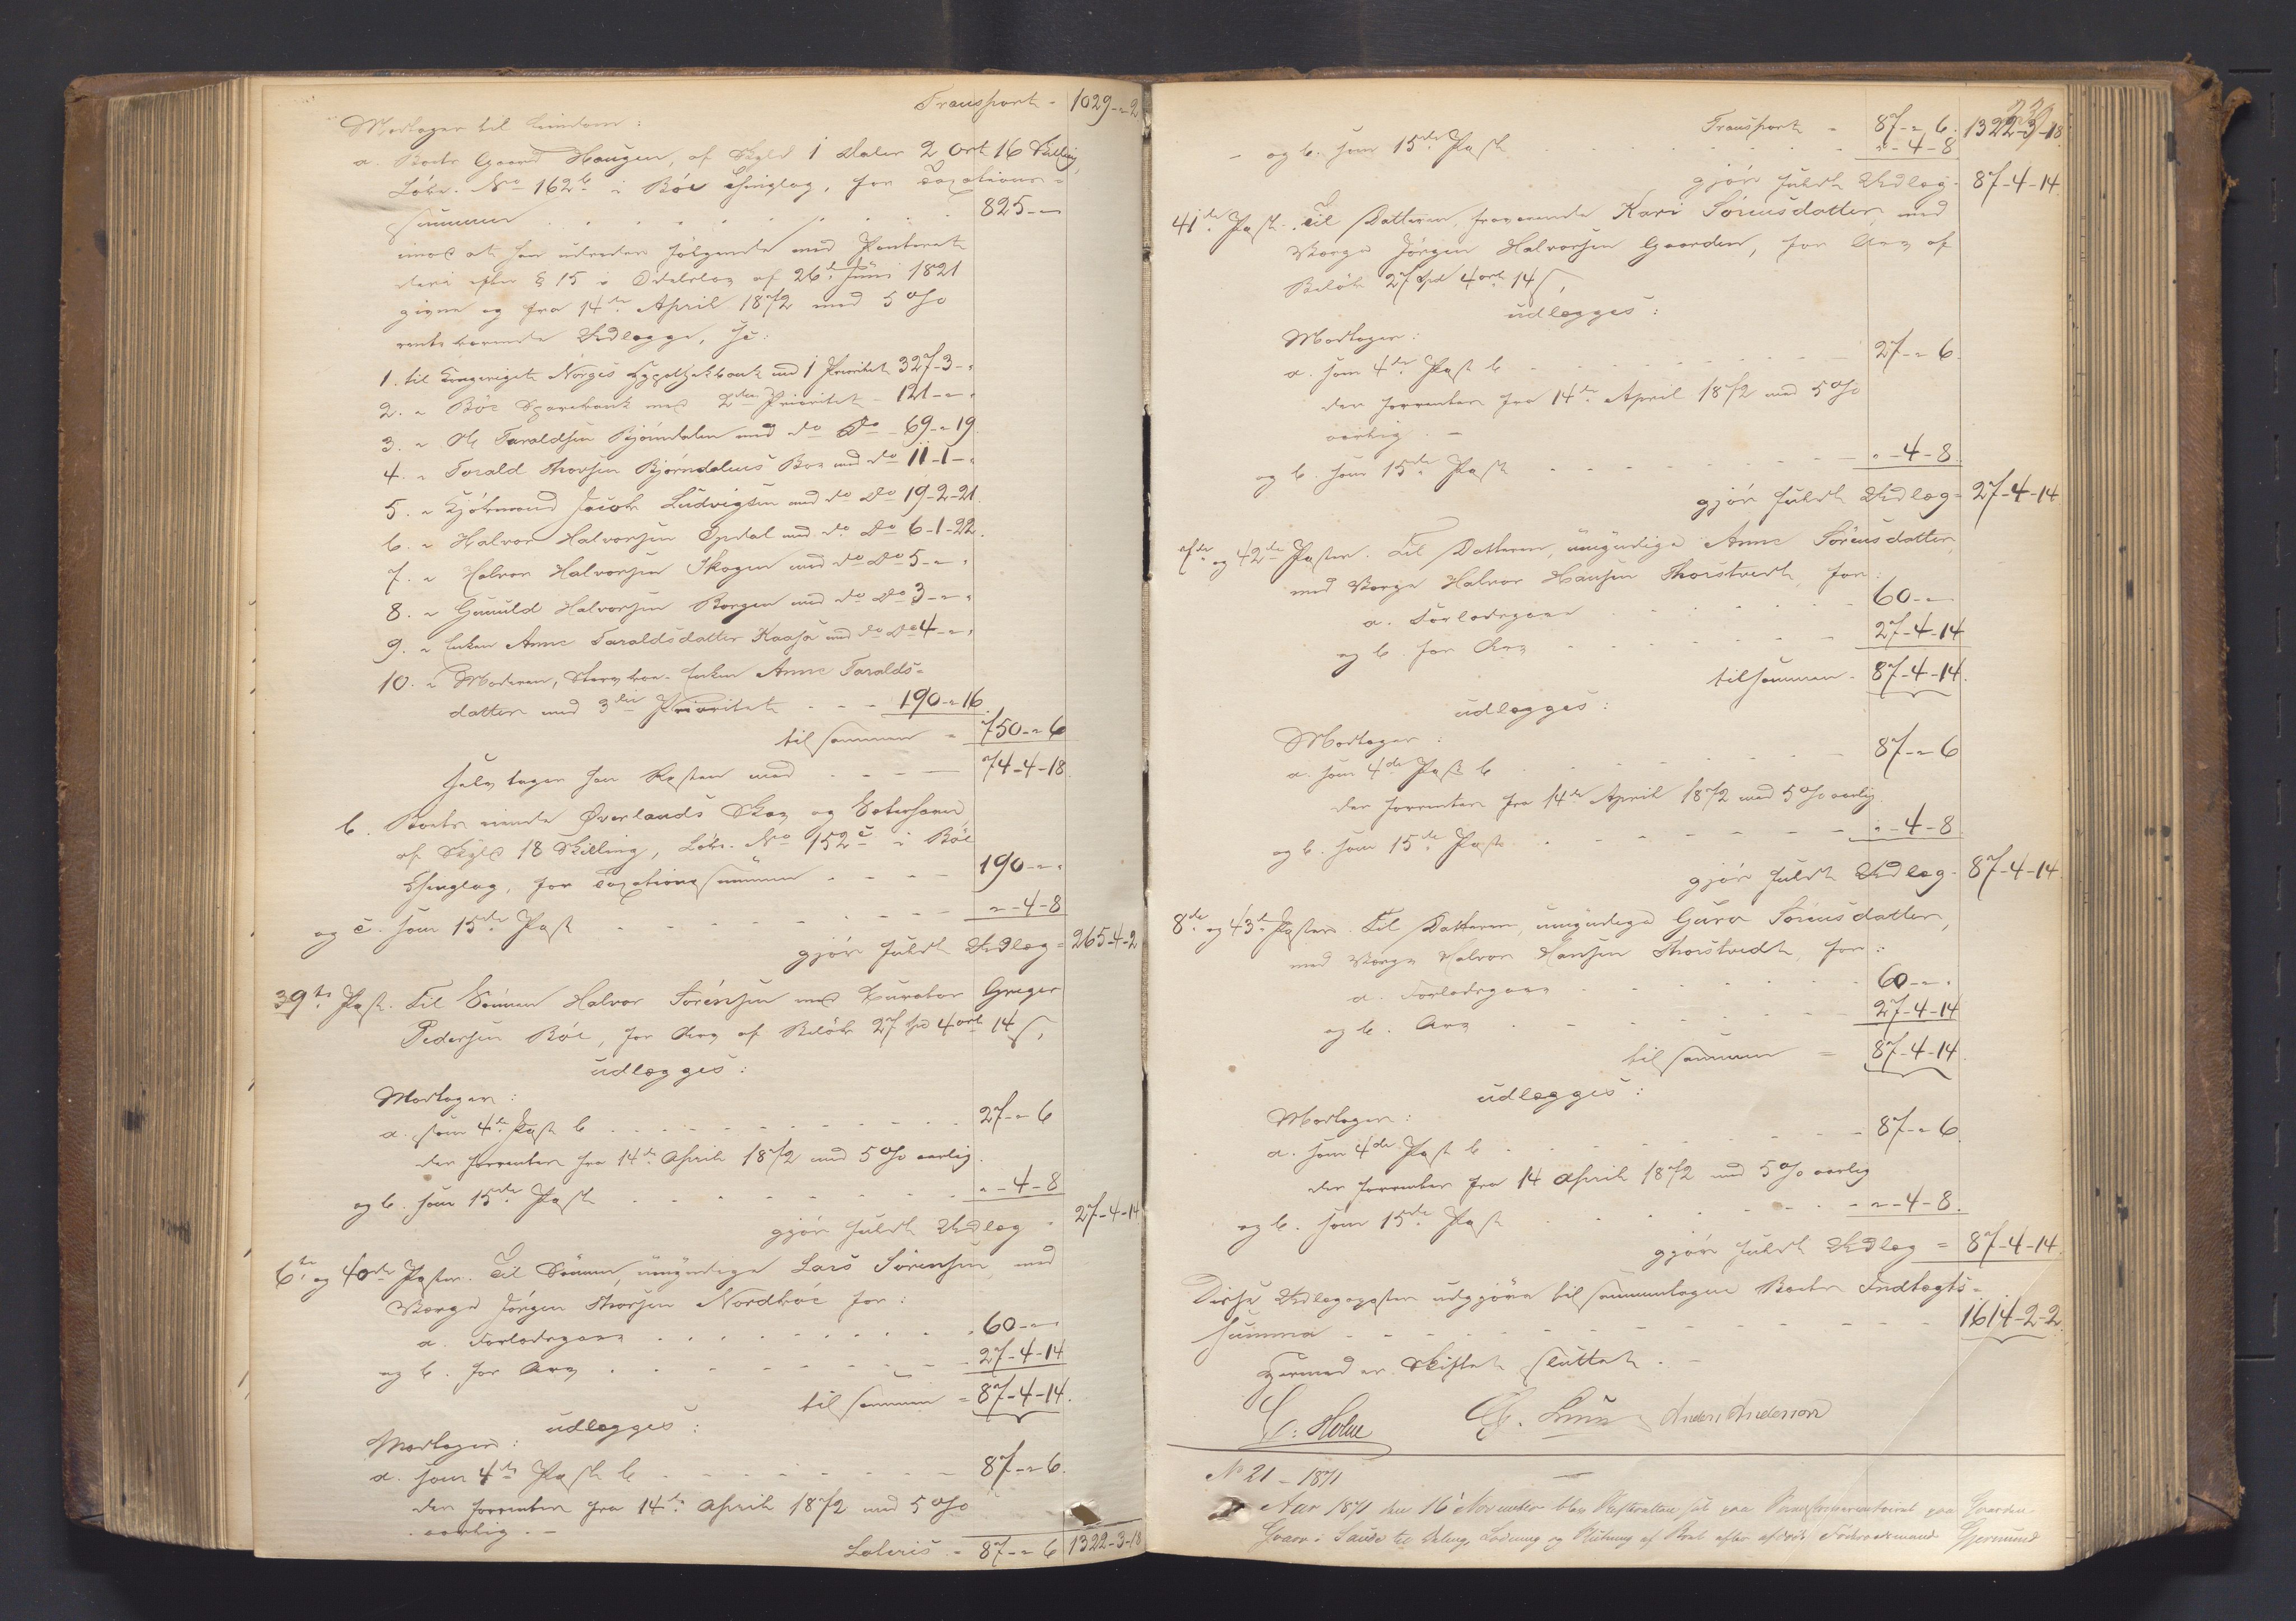 Transport - 1029-"-2
Modtager til Eiendom:
a. Boets Gaard Haugen, af Skyld 1 Daler 2 Ort 16 Skilling,
Løbe-No 162b i Böe Thinglag, for Taxations-
summen . . . . . . . 825-"-
imod at han udreder følgende med Panteret
deri efter § 15 i Odelslov af 26de Juni 1821
givne og fra 14de April 1872 med 5 %
rentebærende Udlægge, sc:
1. til Kongeriget Norges Hypothekbank med 1 Prioritet 327-3-"
2. " Böe Sparebank med 2den Prioritet - 121-"-"
3. " Ole Taraldsen Bjørndalen med do Do - 69-"-19.
4. " Torald Thorsen Bjørndalens Bo med do 11-1-"
5. " Kjøbmand Jacob Ludvigsen med do Do 19-2-21.
6. " Halvor Halvorsen Opdal med do Do 6-1-22.
7. " Halvor Halvorsen Skogen med do Do 5-"-"
8. " Gunuld Halvorsen Borgen med do Do 3-"-"
9. " Enken Anne Taraldsdatter Kaasa med do Do 4-"-"
10. " Moderen, Stervboe-Enken Anne Taralds-
datter med 3die Prioritet - - - 190-"-16.
tilsammen = 750-"-6
selv tager han Resten med . - - - 74-4-18.
b. Boets eiende Øverlands Skov og Sæterhavn,
af Skyld 18 Skilling, Løbe-No 152c i Böe
Thinglag, for Taxationssummen . - - - 190-"-"
og c. som 15de Post - - - - - - "-4-8
gjør fuldt Udlæg = 265-4-2
39te Post. Til Sønnen Halvor Sörensen med Curator Greger
Pedersen Böe, for Arv af Beløb 27 Spd 4 ort 14 s,
udlægges:
Modtager:
a. som 4de Post b . - - - - - - 27-"-6
der forrentes fra 14de April 1872 med 5 % aarlig.
og b. som 15de Post - - - - - - "-4-8
gjør fuldt Udlæg - 27-4-14
6te og 40de Poster. Til Sønnen, umyndige Lars Sörensen, med
Værge Jørgen Thorsen Nordböe for:
a. Forlodsgave . . . - - - - 60-"-"
og b. for Arv . . - - - - - 27-4-14
tilsammen = 87-4-14.
udlægges:
Modtager:
a. som 4de Post b . - - - - - 87-"-6.
der forrentes fra 14de April 1872 med 5 %
aarlig. -
Lateris - 87-"-6 1322-3-18
230
Transport - 87-"-6. 1322-3-18.
- og b. som 15de Post . - - - - - "-4-8
gjør fuldt Udlæg - 87-4-14
41de Post. Til Datteren, fraværende Kari Sörensdatter, med
Værge Jørgen Halvorsen Gaarden, for Arv af
Beløb 27 Spd 4 ort 14 s,
udlægges:
Modtager:
a. som 4de Post b - - - - - - 27-"-6.
der forrentes fra 14de April 1872 med 5 %
aarlig. -
og b. som 15de Post - - - - - - "-4-8.
gjør fuldt Udlæg = 27-4-14.
7de og 42de Poster. Til Datteren, umyndige Anne Sörensdatter,
med Værge Halvor Hansen Thorstvedt, for:
a. Forlodsgave - - - - - 60-"-
og b. for Arv - - - - - 27-4-14
tilsammen - 87-4-14.
udlægges:
Modtager:
a. som 4de Post b - - - - - 87-"-6
der forrentes fra 14de April 1872 med 5 % aarlig.
og b. som 15de Post - - - - - "-4-8
gjør fuldt Udlæg - 87-4-14.
8de og 43de Poster. Til Datteren, umyndige Guro Sörensdatter,
med Værge Halvor Hansen Thorstvedt, for:
a. Forlodsgave - - - - - 60-"-"
og b. Arv . - - - - - 27-4-14
tilsammen = 87-4-14.
udlægges:
Modtager:
a. som 4de Post b . - - - - - 87-"-6.
der forrentes fra 14 April 1872 med 5 % aarlig
og b. som 15de Post - - - - - "-4-8.
gjør fuldt Udlæg = 87-4-14.
Disse Udlægsposter udgjøre tilsammentagne Boets Indtægts-
summa - - - - - - - - 1614-2-2.
Hermed er Skiftet sluttet. -
C. Holm Anders Anderson
No 21 - 1871
Aar 1871 den 16 November blev Skifteretten sat paa paa Gaarden
Gvarv i Saude til Deling og Slutning af Boet efter afdöde Föderaadsmand Gjermund